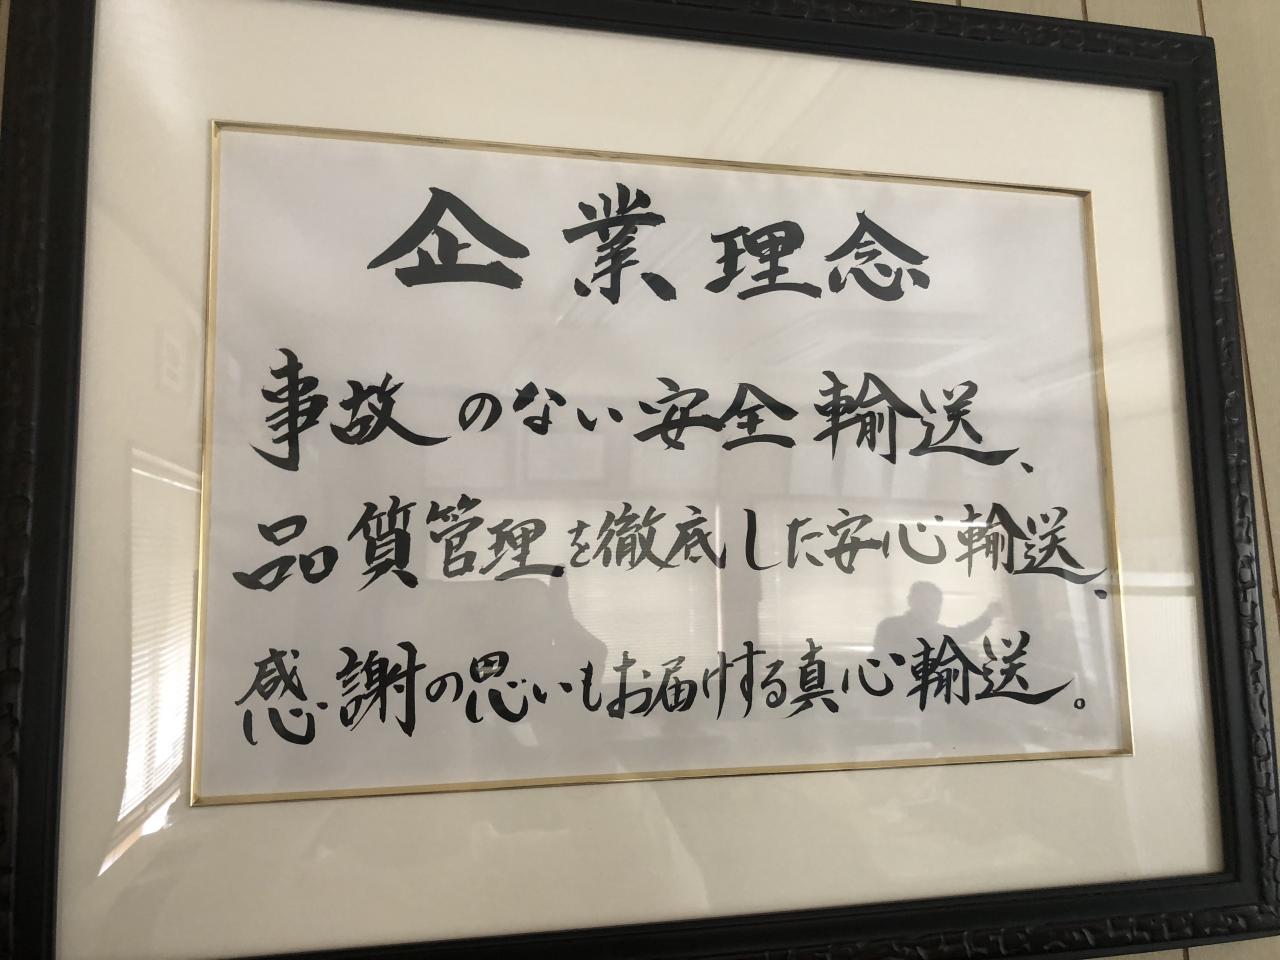 企業理念
事故のない安全輸送、
品質管理を徹底した安心輸送、
感謝の思いもお届けする真心輸送。